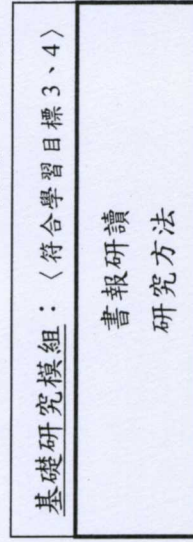 基礎研究模組：〈符合學習目標 3、4〉
書報研讀
研究方法